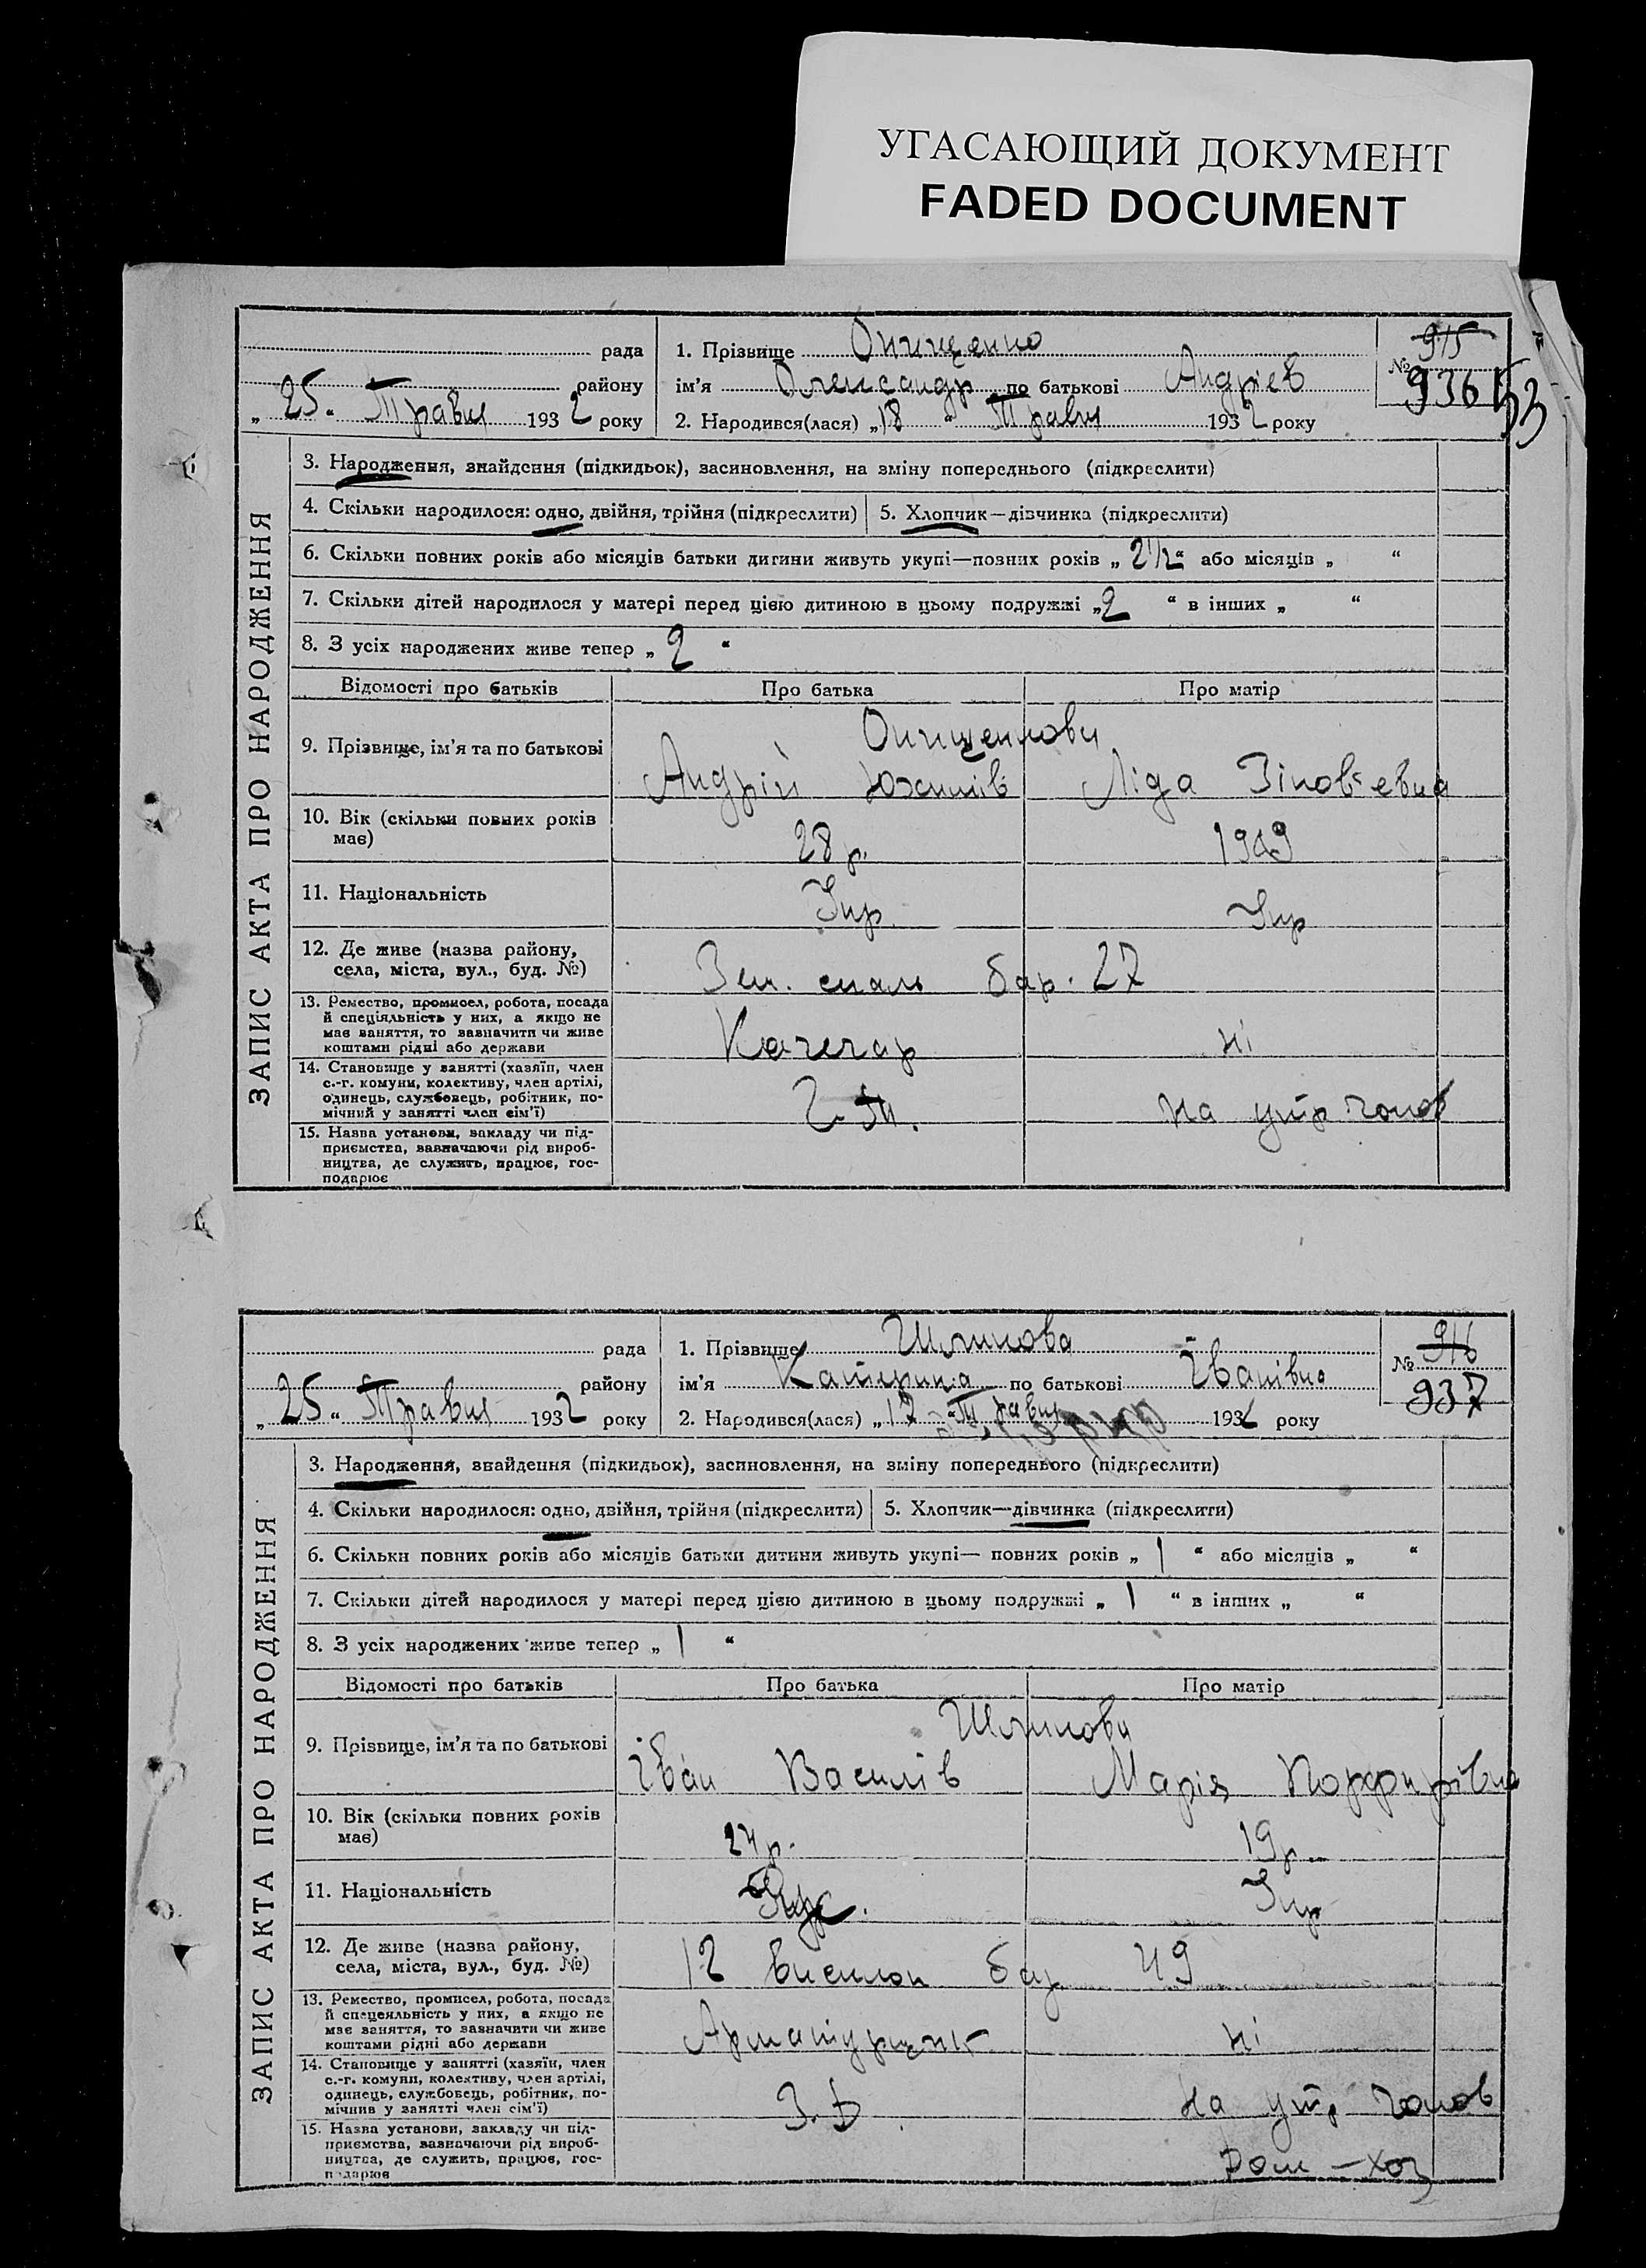 УГАСАЮЩИЙ ДОКУМЕНТ
FADED DOCUMENT
ЗАПИС АКТА ПРО НАРОДЖЕННЯ
рада
району
„ 25 “ Травня 1932 року
1. Прізвище Онищенко
ім’я Олександр по батькові Андрієв
2. Народився(лася) „ 18 “ Травня 1932 року
915
№ 936
53
3. Народження, знайдення (підкидьок), засиновлення, на зміну попереднього (підкреслити)
4. Скільки народилося: одно, двійня, трійня (підкреслити)
5. Хлопчик—дівчинка (підкреслити)
6. Скільки повних років або місяців батьки дитини живуть укупі—повних років „ 2 1/2 “ або місяців „ “
7. Скільки дітей народилося у матері перед цією дитиною в цьому подружжі „ 2 “ в інших „ “
8. З усіх народжених живе тепер „ 2 “
Відомості про батьків Про батька Про матір
9. Прізвище, ім’я та по батькові
Онищенкови
Андрій Ліда Зіновʼевна
10. Вік (скільки повних років
має)
28 р. 19
11. Національність
Укр. Укр
12. Де живе (назва району,
села, міста, вул., буд. №)
бар. 27
13. Ремество, промисел, робота, посада
й спеціяльність у них, а якщо не
має заняття, то зазначити чи живе
коштами рідні або держави
Качегар ні
14. Становище у занятті (хазяїн, член
с.-г. комуни, колективу, член артілі,
одинець, службовець, робітник, по-
мічний у занятті член сім’ї)
на утр. чолов
15. Назва установи, закладу чи під-
приємства, зазначаючи рід вироб-
ництва, де служить, працює, гос-
подарює
ЗАПИС АКТА ПРО НАРОДЖЕННЯ
рада
району
„ 25 “ Травня 1932 року
1. Прізвище Шликова
ім’я Катерина по батькові Іванівна
2. Народився(лася) „ 17 “ Травня 1932 року
916
№ 937
3. Народження, знайдення (підкидьок), засиновлення, на зміну попереднього (підкреслити)
4. Скільки народилося: одно, двійня, трійня (підкреслити)
5. Хлопчик—дівчинка (підкреслити)
6. Скільки повних років або місяців батьки дитини живуть укупі— повних років „ 1 “ або місяців „ “
7. Скільки дітей народилося у матері перед цією дитиною в цьому подружжі „ 1 “ в інших „ “
8. З усіх народжених живе тепер „ 1 “
Відомості про батьків Про батька Про матір
9. Прізвище, ім’я та по батькові
Шликови
Іван Василів Марія Порфирівна
10. Вік (скільки повних років
має)
24 р. 19 р.
11. Національність
Рус. Укр
12. Де живе (назва району,
села, міста, вул., буд. №)
12 виселок бар 49
13. Ремество, промисел, робота, посада
й спецеяльність у них, а якщо не
має заняття, то зазначити чи живе
коштами рідні або держави
Арматурщик ні
14. Становище у занятті (хазяїн, член
с.-г. комуни, колективу, член артілі,
одинець, службовець, робітник, по-
мічнив у занятті член сім’ї)
З. Д. на утр чолов
15. Назва установи, закладу чи під-
приємства, зазначаючи рід вироб-
ництва, де служить, працює, гос-
подарює
Дом – хоз